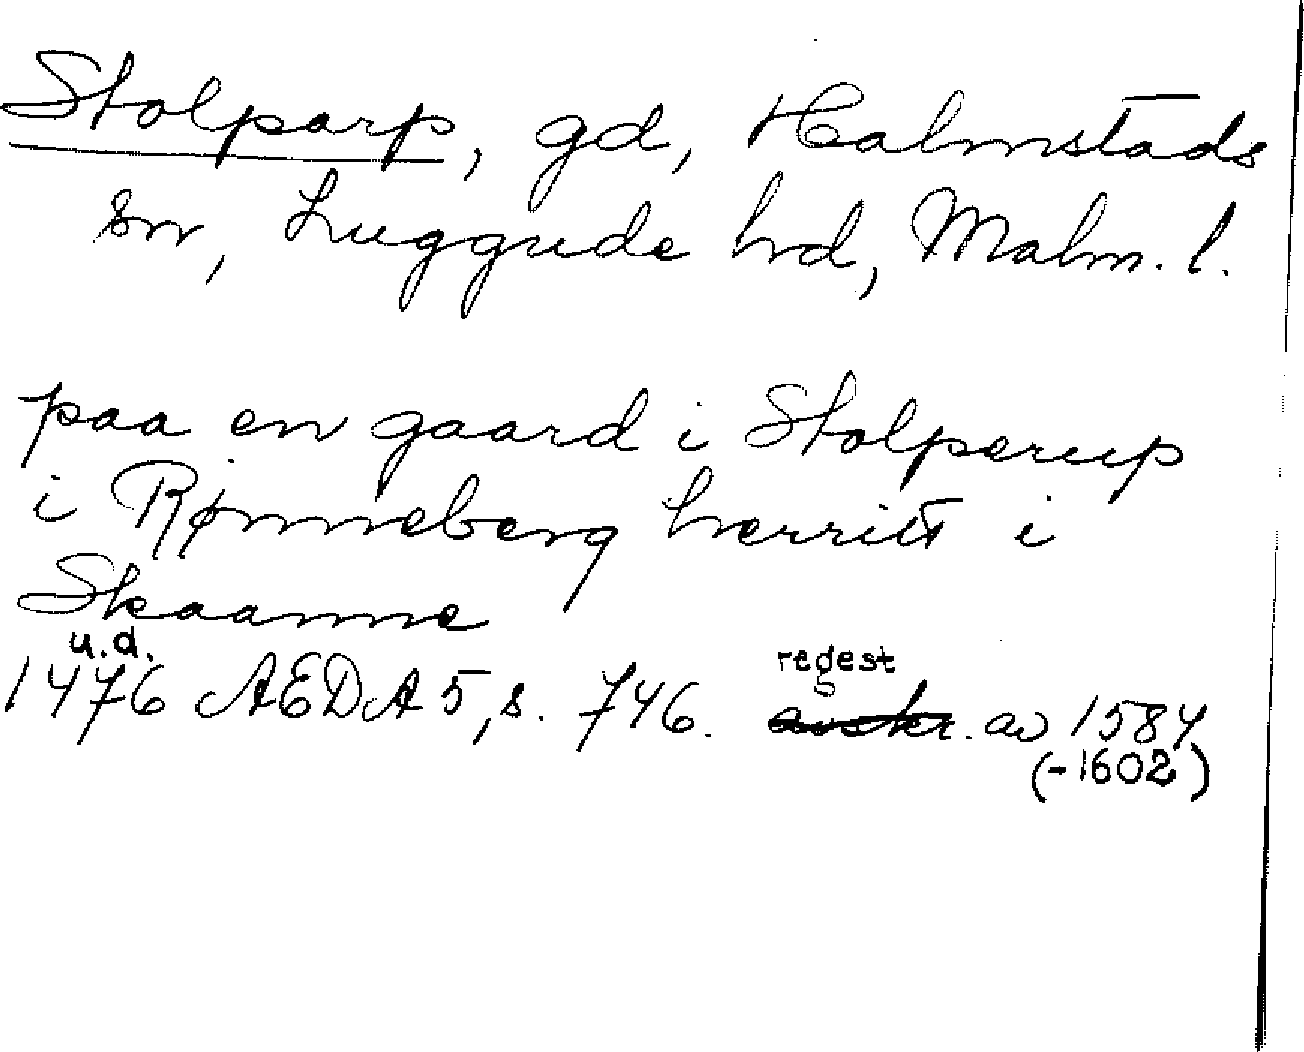 Stolparp, gd, Halmstads
sn, Luggude hd, Malm. l.
paa en gaard i Stolperup
i Rønneberg herritt i
Skaanne
u.d.
1476 AEDA 5, s. 746. regest av 1584
(-1602)